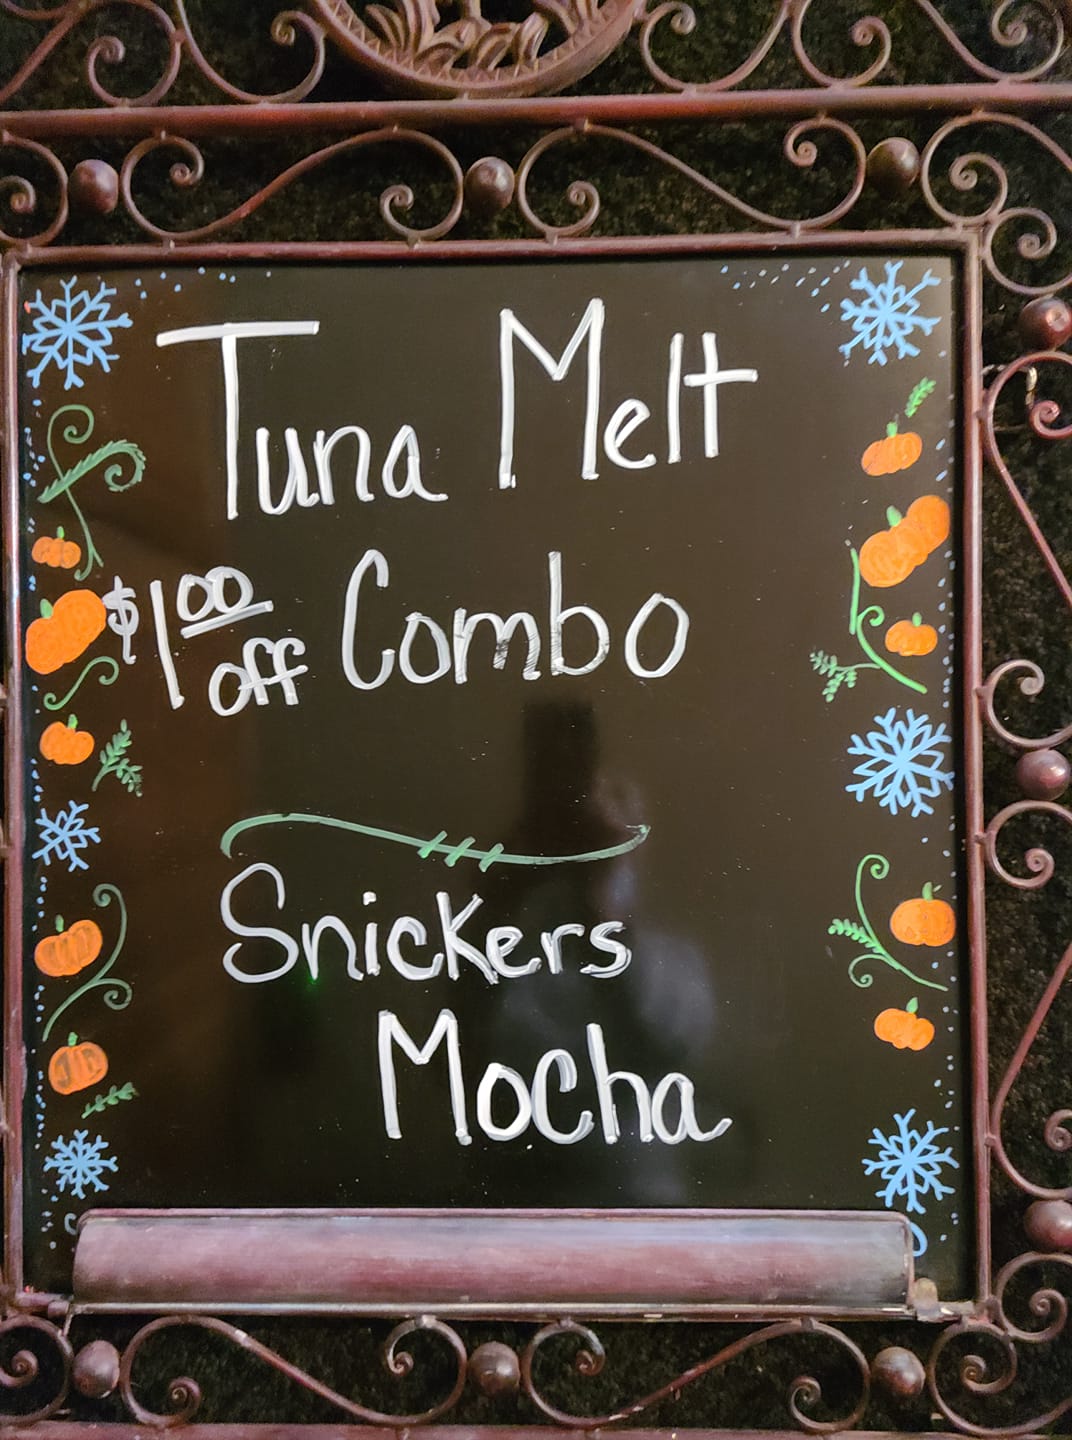 Tuna Melt
$1.00 off Combo
Snickers
Mocha